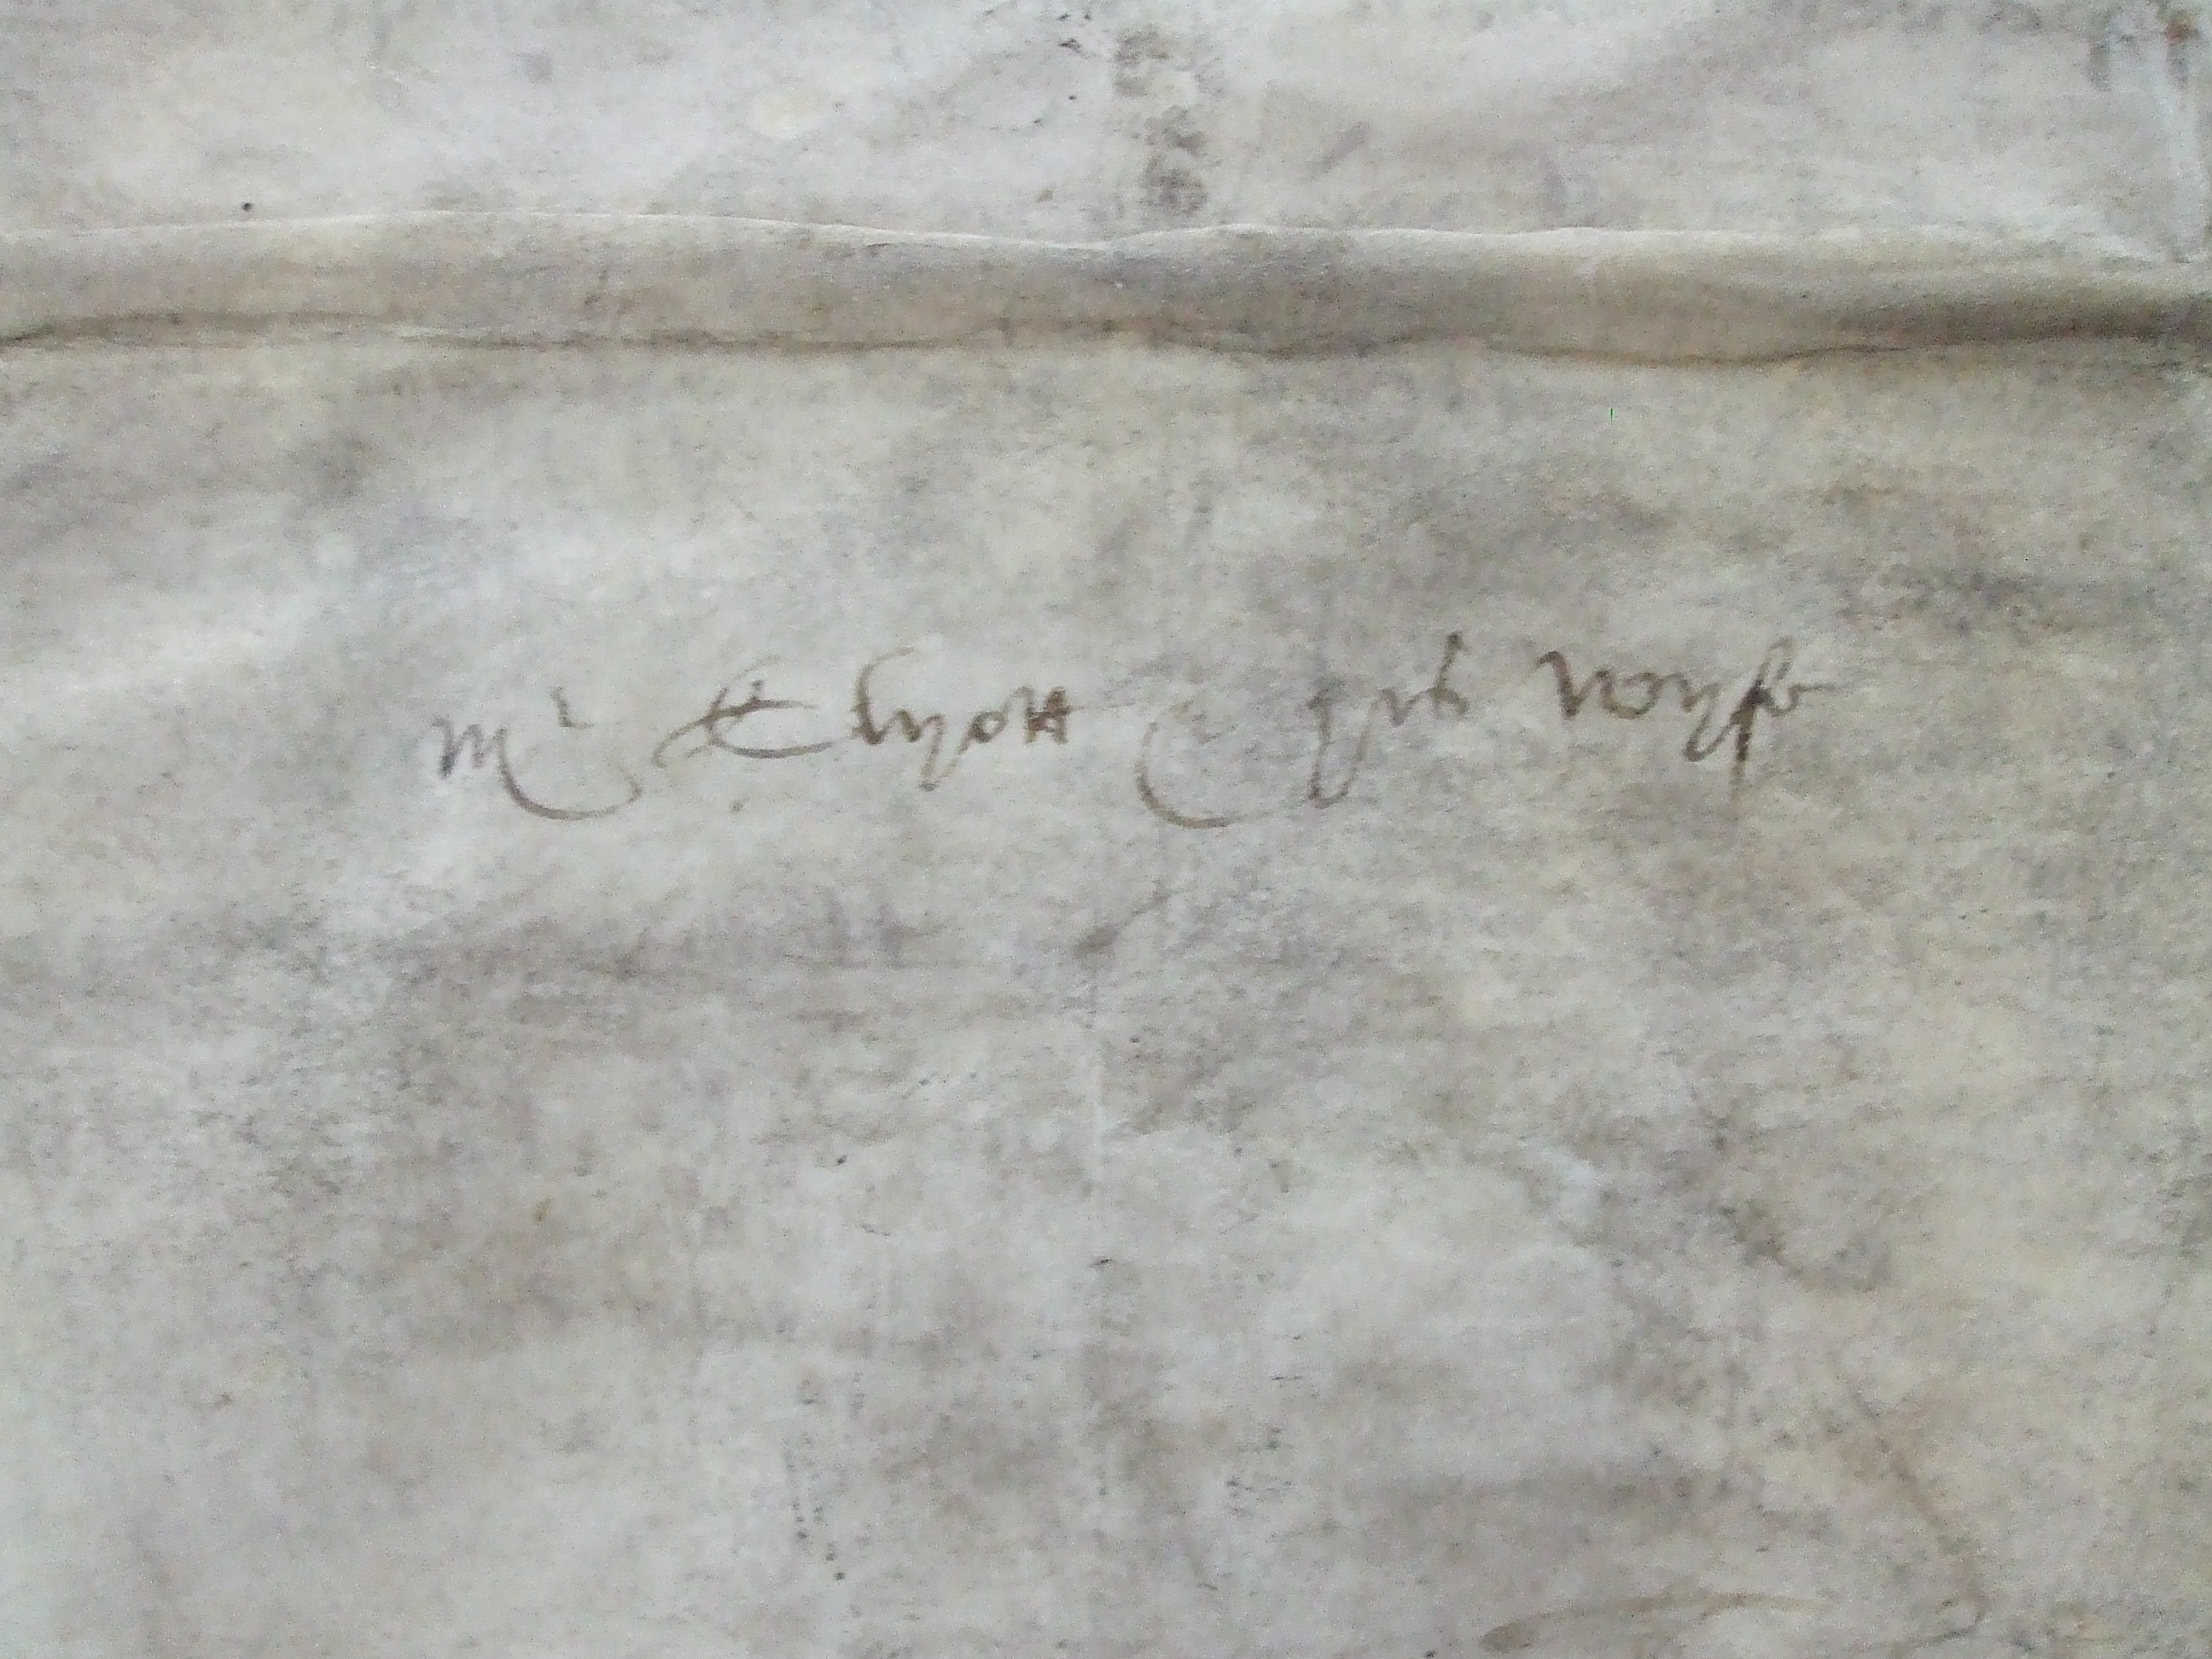 Mr Elyott & his wyfe